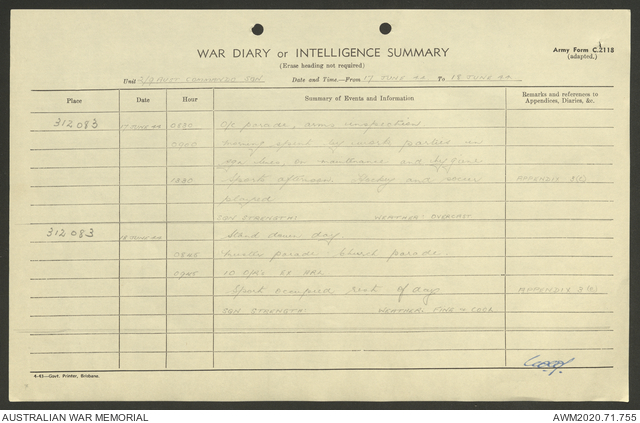 WAR DIARY or INTELLIGENCE SUMMARY
(Erase heading not required)
Army Form C.2118
(adapted.)
Unit 2/9 AUST COMMANDO SQN Date and Time—From 17 JUNE 44 To 18 JUNE 44
Place Date Hour Summary of Events and Information Remarks and references to
Appendices, Diaries, &c.
312083 17 JUNE 44 parade, arms inspection
Morning spent by work parties in
lines, on maintenance and hygiene
Sports afternoon. Hockey and soccer APPENDIX
played
SQN STRENGTH: WEATHER: OVERCAST
312083 18 JUNE 44 Stand down day
0845 parade. Church parade.
0945 10 O/R's EX
Sport occupied rest of day APPENDIX
SQN STRENGTH: WEATHER: FINE & COOL
4-43—Govt. Printer, Brisbane.
AUSTRALIAN WAR MEMORIAL AWM2020.71.755